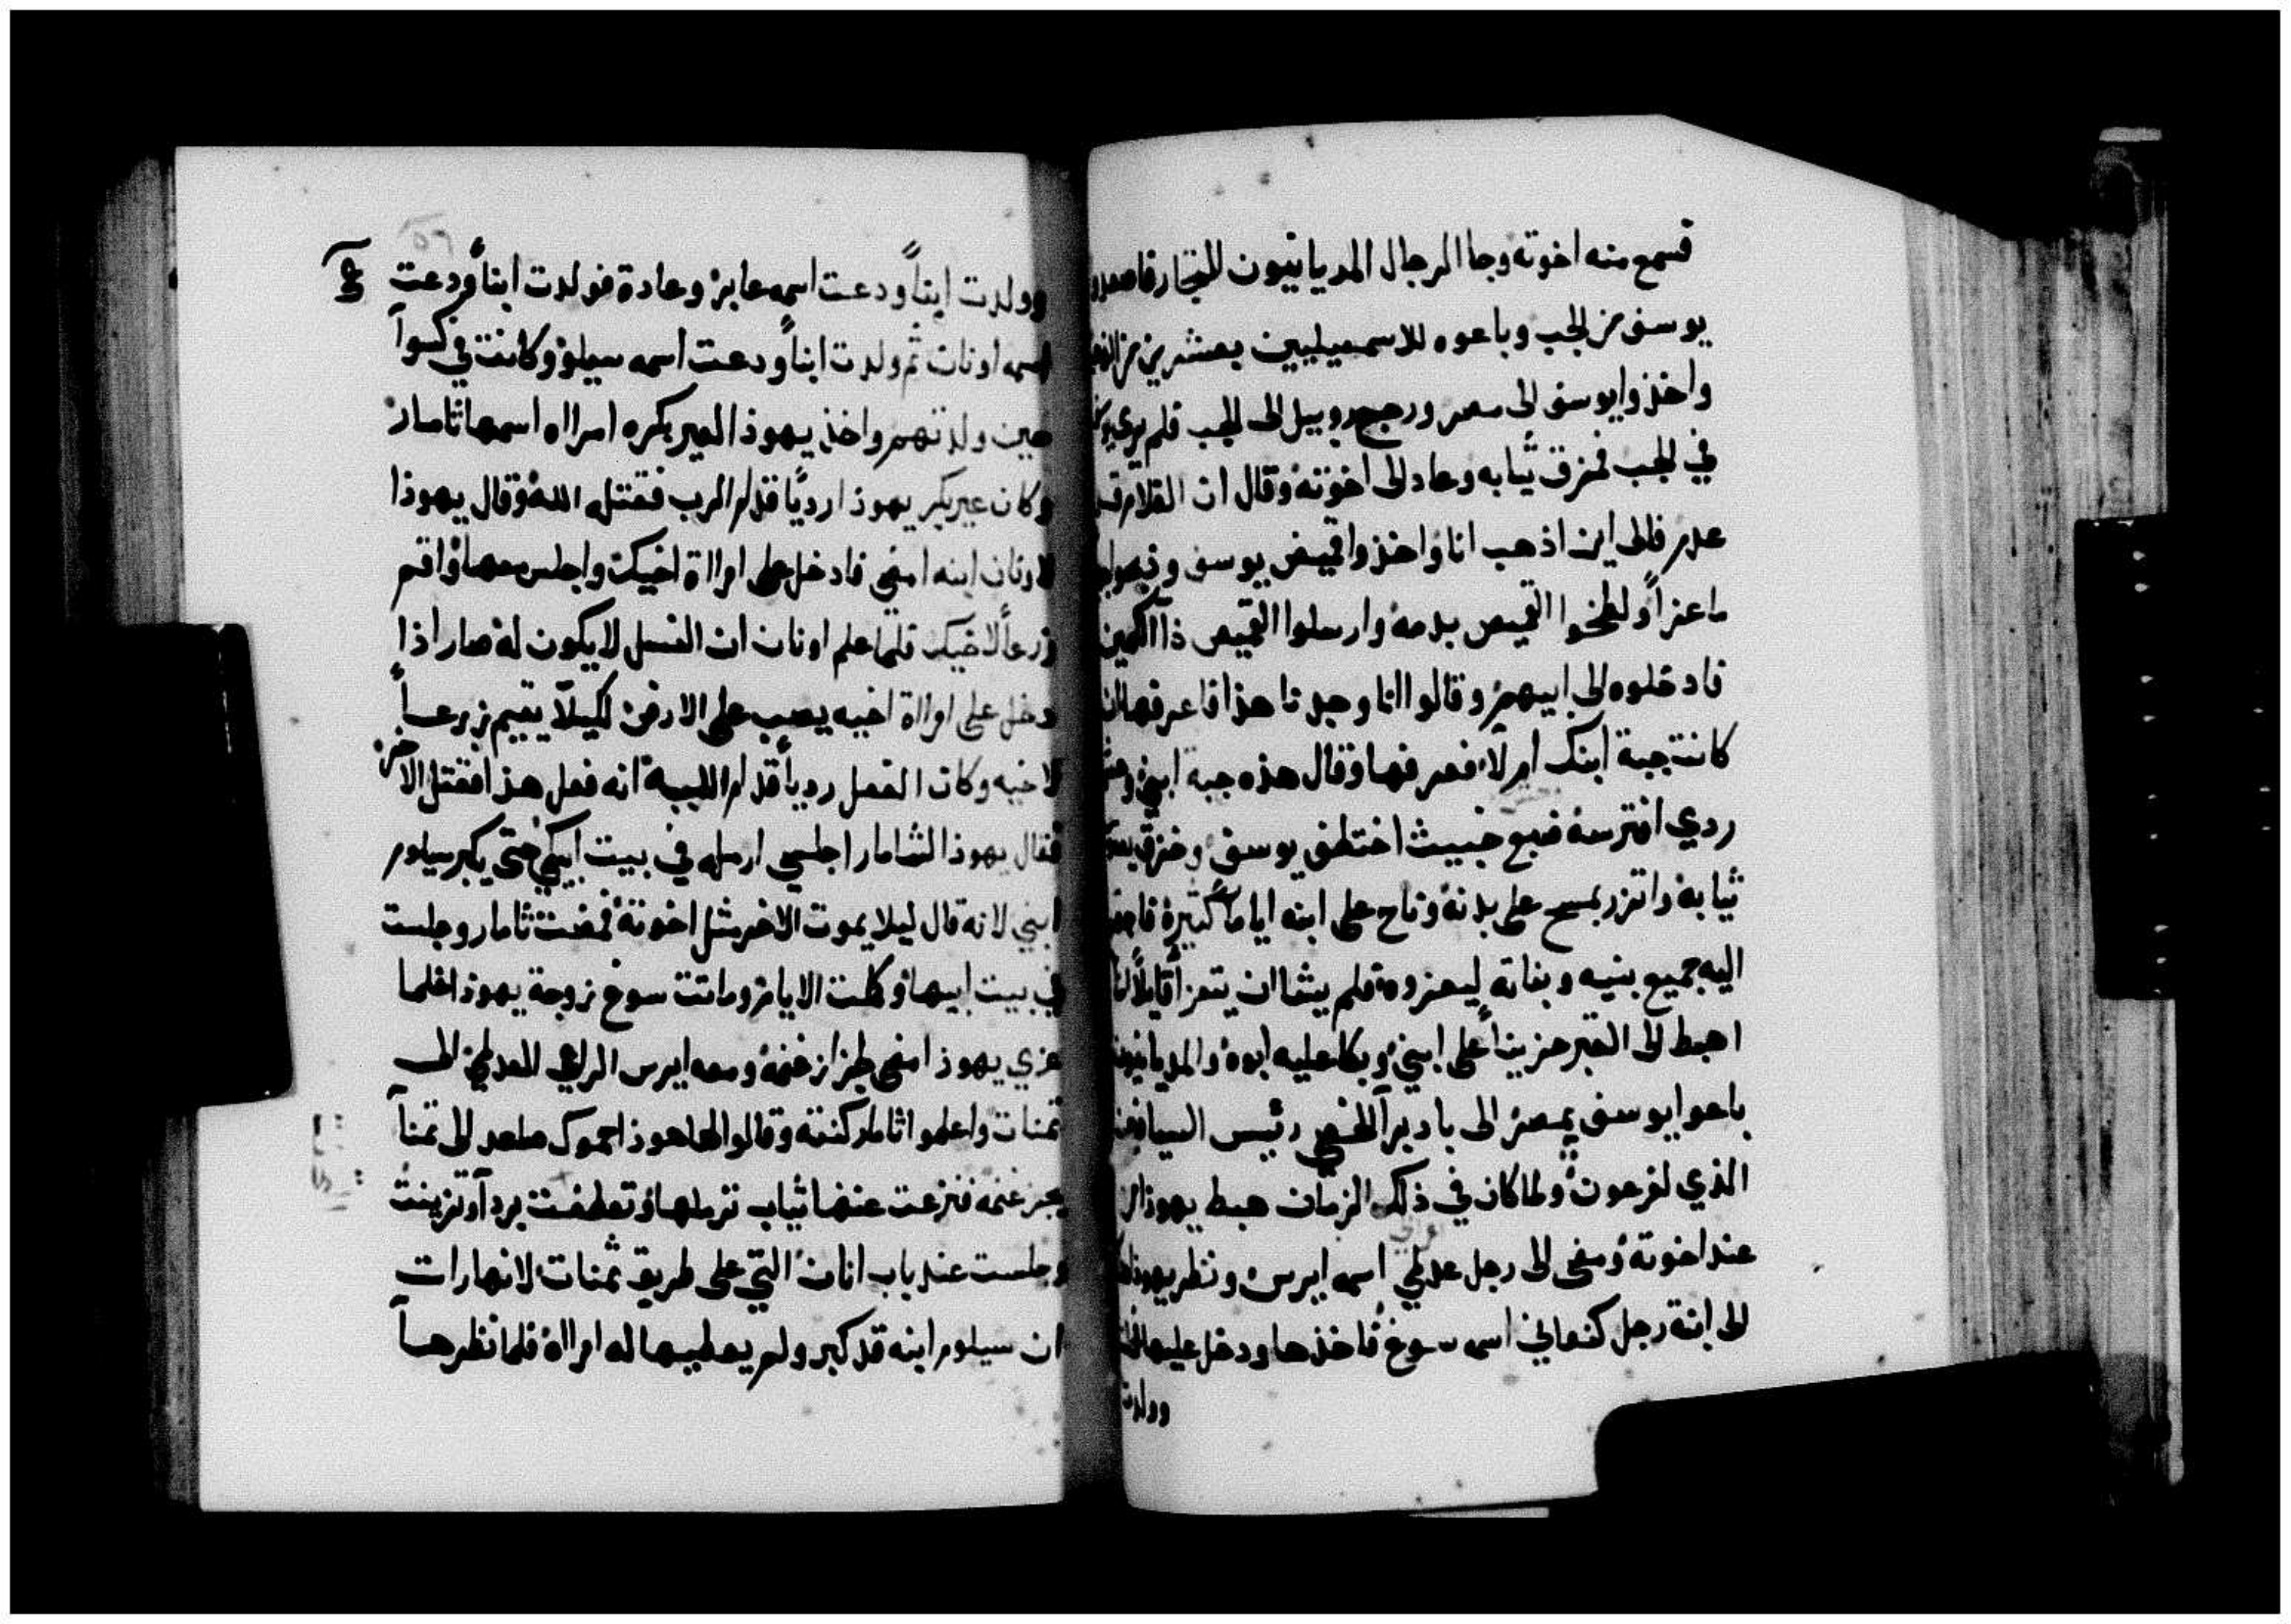 فسمع منه اخوته وجا الرجال المديانيون للتجار فاصعدوا
يوسف من الجب وباعوه للاسمعيليين بعشرين من الذهب
واخذوا يوسف الى مصر ورجع روبيل الى الجب فلم يرى
في الجب فمزق ثيابه وعاد الى اخوته وقال ان الغلام قد
عدم فالى اين اذهب انا واخذوا قميص يوسف وذبحوا
ماعزاً ولطخوا القميص بدمه وارسلوا القميص ذا الكمين
فادخلوه الى ابيهم وقالوا انا وجدنا هذا فاعرفها ان
كانت جبة ابنك ام لا فعرفها وقال هذه جبة ابني وحش
ردي افترسه ضبع خبيث اختطف يوسف وخرق
ثيابه واتزر بمسح على بدنه وناح على ابنه اياماً كثيرة
اليه جميع بنيه وبناته ليعزوه فلم يشا ان يتعزا قايلاً
اهبط الى القبر حزيناً على ابني وبكا عليه ابوه والمديانيون
باعوا يوسف بمصر الى رئيس
الذي لفرعون ولما كان في ذلك الزمان هبط يهوذا
عند اخوته ومضى الى رجل عدلمي اسمه ايرس ونظر يهوذا
الى ابنة رجل كنعاني اسمه سوع فاخذها ودخل عليها
وولدت
وولدت ابناً ودعت اسمه عابر وعادة فولدت ابناً ودعت
اسمه اونان ثم ولدت ابناً ودعت اسمه سيلو وكانت في
حين ولدتهم واخذ يهوذا لعير بكره امراه اسمها ثامار
وكان عير بكر يهوذا ردياً قدام الرب فقتله الله وقال يهوذا
لاونان ابنه امضي فادخل على امراة اخيك واجلس معها واقم
زرعاً لاخيك فلما علم اونان ان النسل لا يكون له صار اذا
دخل على امراة اخيه يصب على الارض لكيلا يقيم زرعاً
لاخيه وكان الفعل ردياً قدام انه فعل هذا فقتل الاخر
فقال يهوذا لثامار اجلسي ارمله في بيت ابيكي حتى يكبر سيلوم
ابني لانه قال ليلا يموت الاخر مثل اخوته فمضت ثامار وجلست
في بيت ابيها وكملت الايام وماتت سوع زوجة يهوذا فلما
عزي يهوذا امضى لجزاز غنمه ومعه ايرس الراعي العدلمي الى
تمنات واعلموا ثامار كنته وقالوا لها هوذا حموك صاعد الى تمنا
يجز غنمه فنزعت عنها ثياب ترملها وتعطفت بردا وتزينت
وجلست عند باب انان التي على طريق تمنات لانها رات
ان سيلوم ابنه قد كبر ولم يعطيها له امراة فلما نظرها